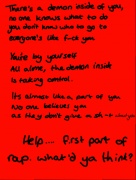 There's a demon inside of you,
no one knows what to do
you don't know who to go to
everyone's like fuck you
You're by yourself
All alone, the demon inside
is taking control.
Its almost like a part of you
No one believes you
as they don't give a sh-t
Help.... first part of
rap. what'd ya think?